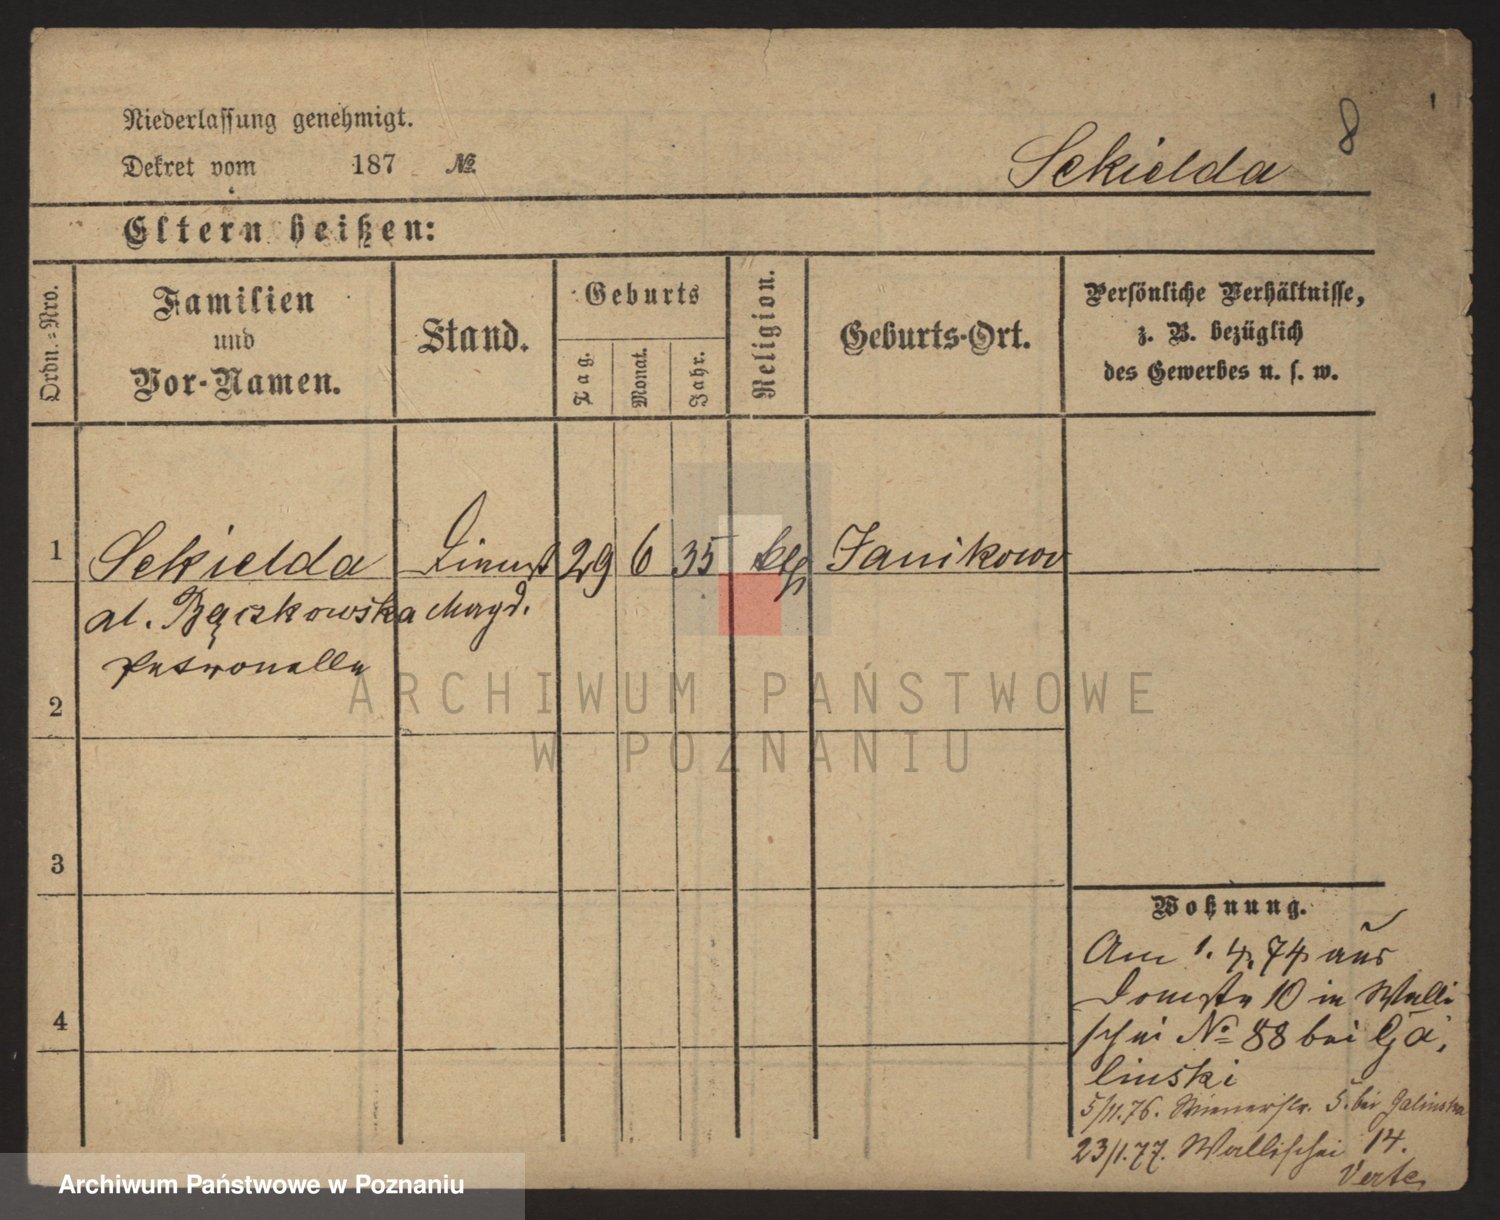 8
Niederlassung genehmigt.
Dekret vom 187 №
Sekielda
Eltern heißen:
Ordn.-Nro.
Familien
und
Vor-Namen.
Stand.
Geburts
Tag.
Monat.
Jahr.
Religion.
Geburts-Ort.
Persönliche Verhältnisse,
z. B. bezüglich
des Gewerbes u. s. w.
1 Sekielda Dienst 29 6 35 Janikowo
al. Bączkowska Magd.
Petronella
2
3
4
Wohnung.
Am 1. 4. 74 aus
Domstr 10 in Walli
schei No 88 bei Ga,
linski
5/11.76. Wienerstr. 5. bei Galinska
23/1.77. Wallischei 14.
Verte
ARCHIWUM PAŃSTWOWE
W POZNANIU
Archiwum Państwowe w Poznaniu